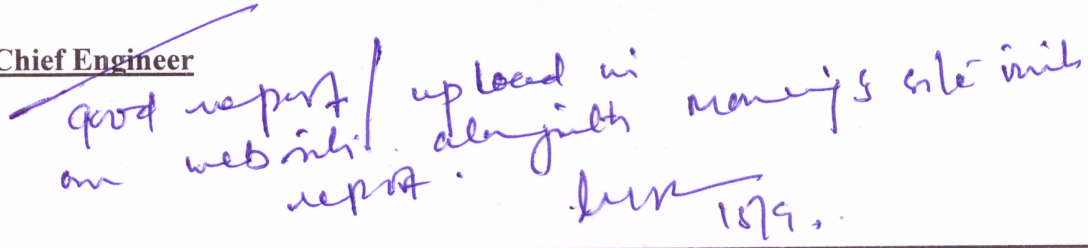 Chief Engineer
good report / upload in
our website. alongwith morning's site visit
report.
15/9.